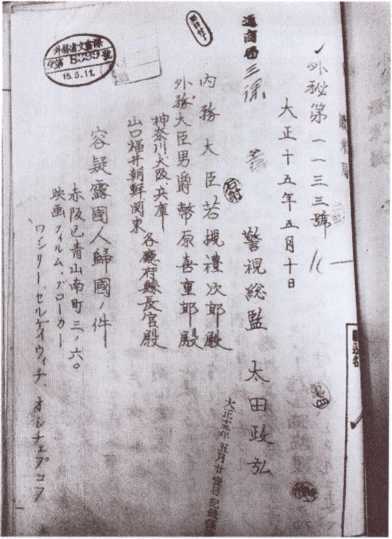 外秘第一一三三號
大正十五年五月十日
警視総監 太田政弘
内務大臣若槻禮次郎殿
外務大臣男爵幣原喜重郎殿
神奈川、大阪、兵庫
山口福井朝鮮関東
各廳府縣長官殿
容疑露國人歸國ノ件
赤坂區青山南町三ノ六〇
映画フィルム、ブローカー
ワシリー、セルゲイウィチ、オシチェプコフ
通商局
三課
外務省文書課
15.5.11.